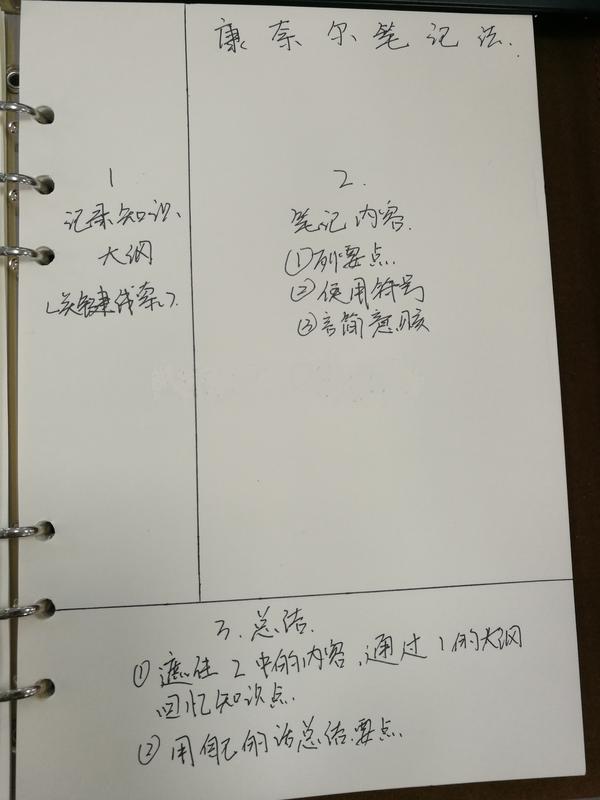 康奈尔笔记法.
1
记录知识、
大纲
(关键线索).
2.
笔记内容.
①列要点.
②使用符号
③言简意赅
3.总结.
①遮住2中的内容,通过1的大纲
回忆知识点.
②用自己的话总结要点.